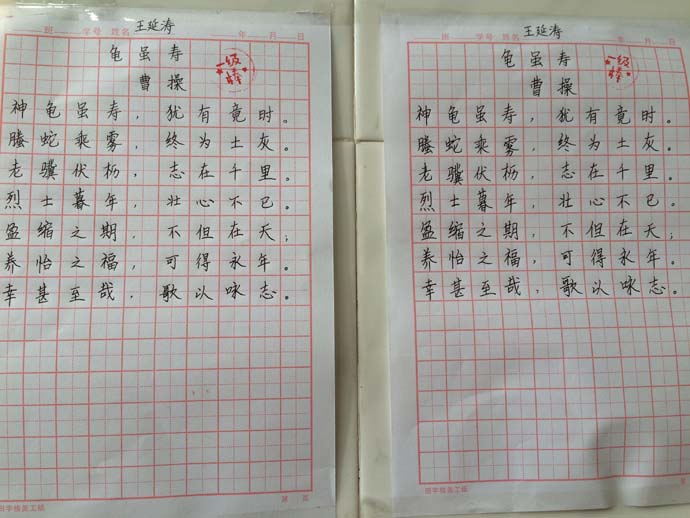 王延涛
班 学号 姓名 年 月 日
龟虽寿
曹操
一级棒
神龟虽寿，犹有竟时。
腾蛇乘雾，终为土灰。
老骥伏枥，志在千里。
烈士暮年，壮心不已。
盈缩之期，不但在天；
养怡之福，可得永年。
幸甚至哉，歌以咏志。
田字格美工纸
第 页
王延涛
年 月 日
龟虽寿
曹操
一级棒
神龟虽寿，犹有竟时。
腾蛇乘雾，终为土灰。
老骥伏枥，志在千里。
烈士暮年，壮心不已。
盈缩之期，不但在天；
养怡之福，可得永年。
幸甚至哉，歌以咏志。
田字格美工纸
第